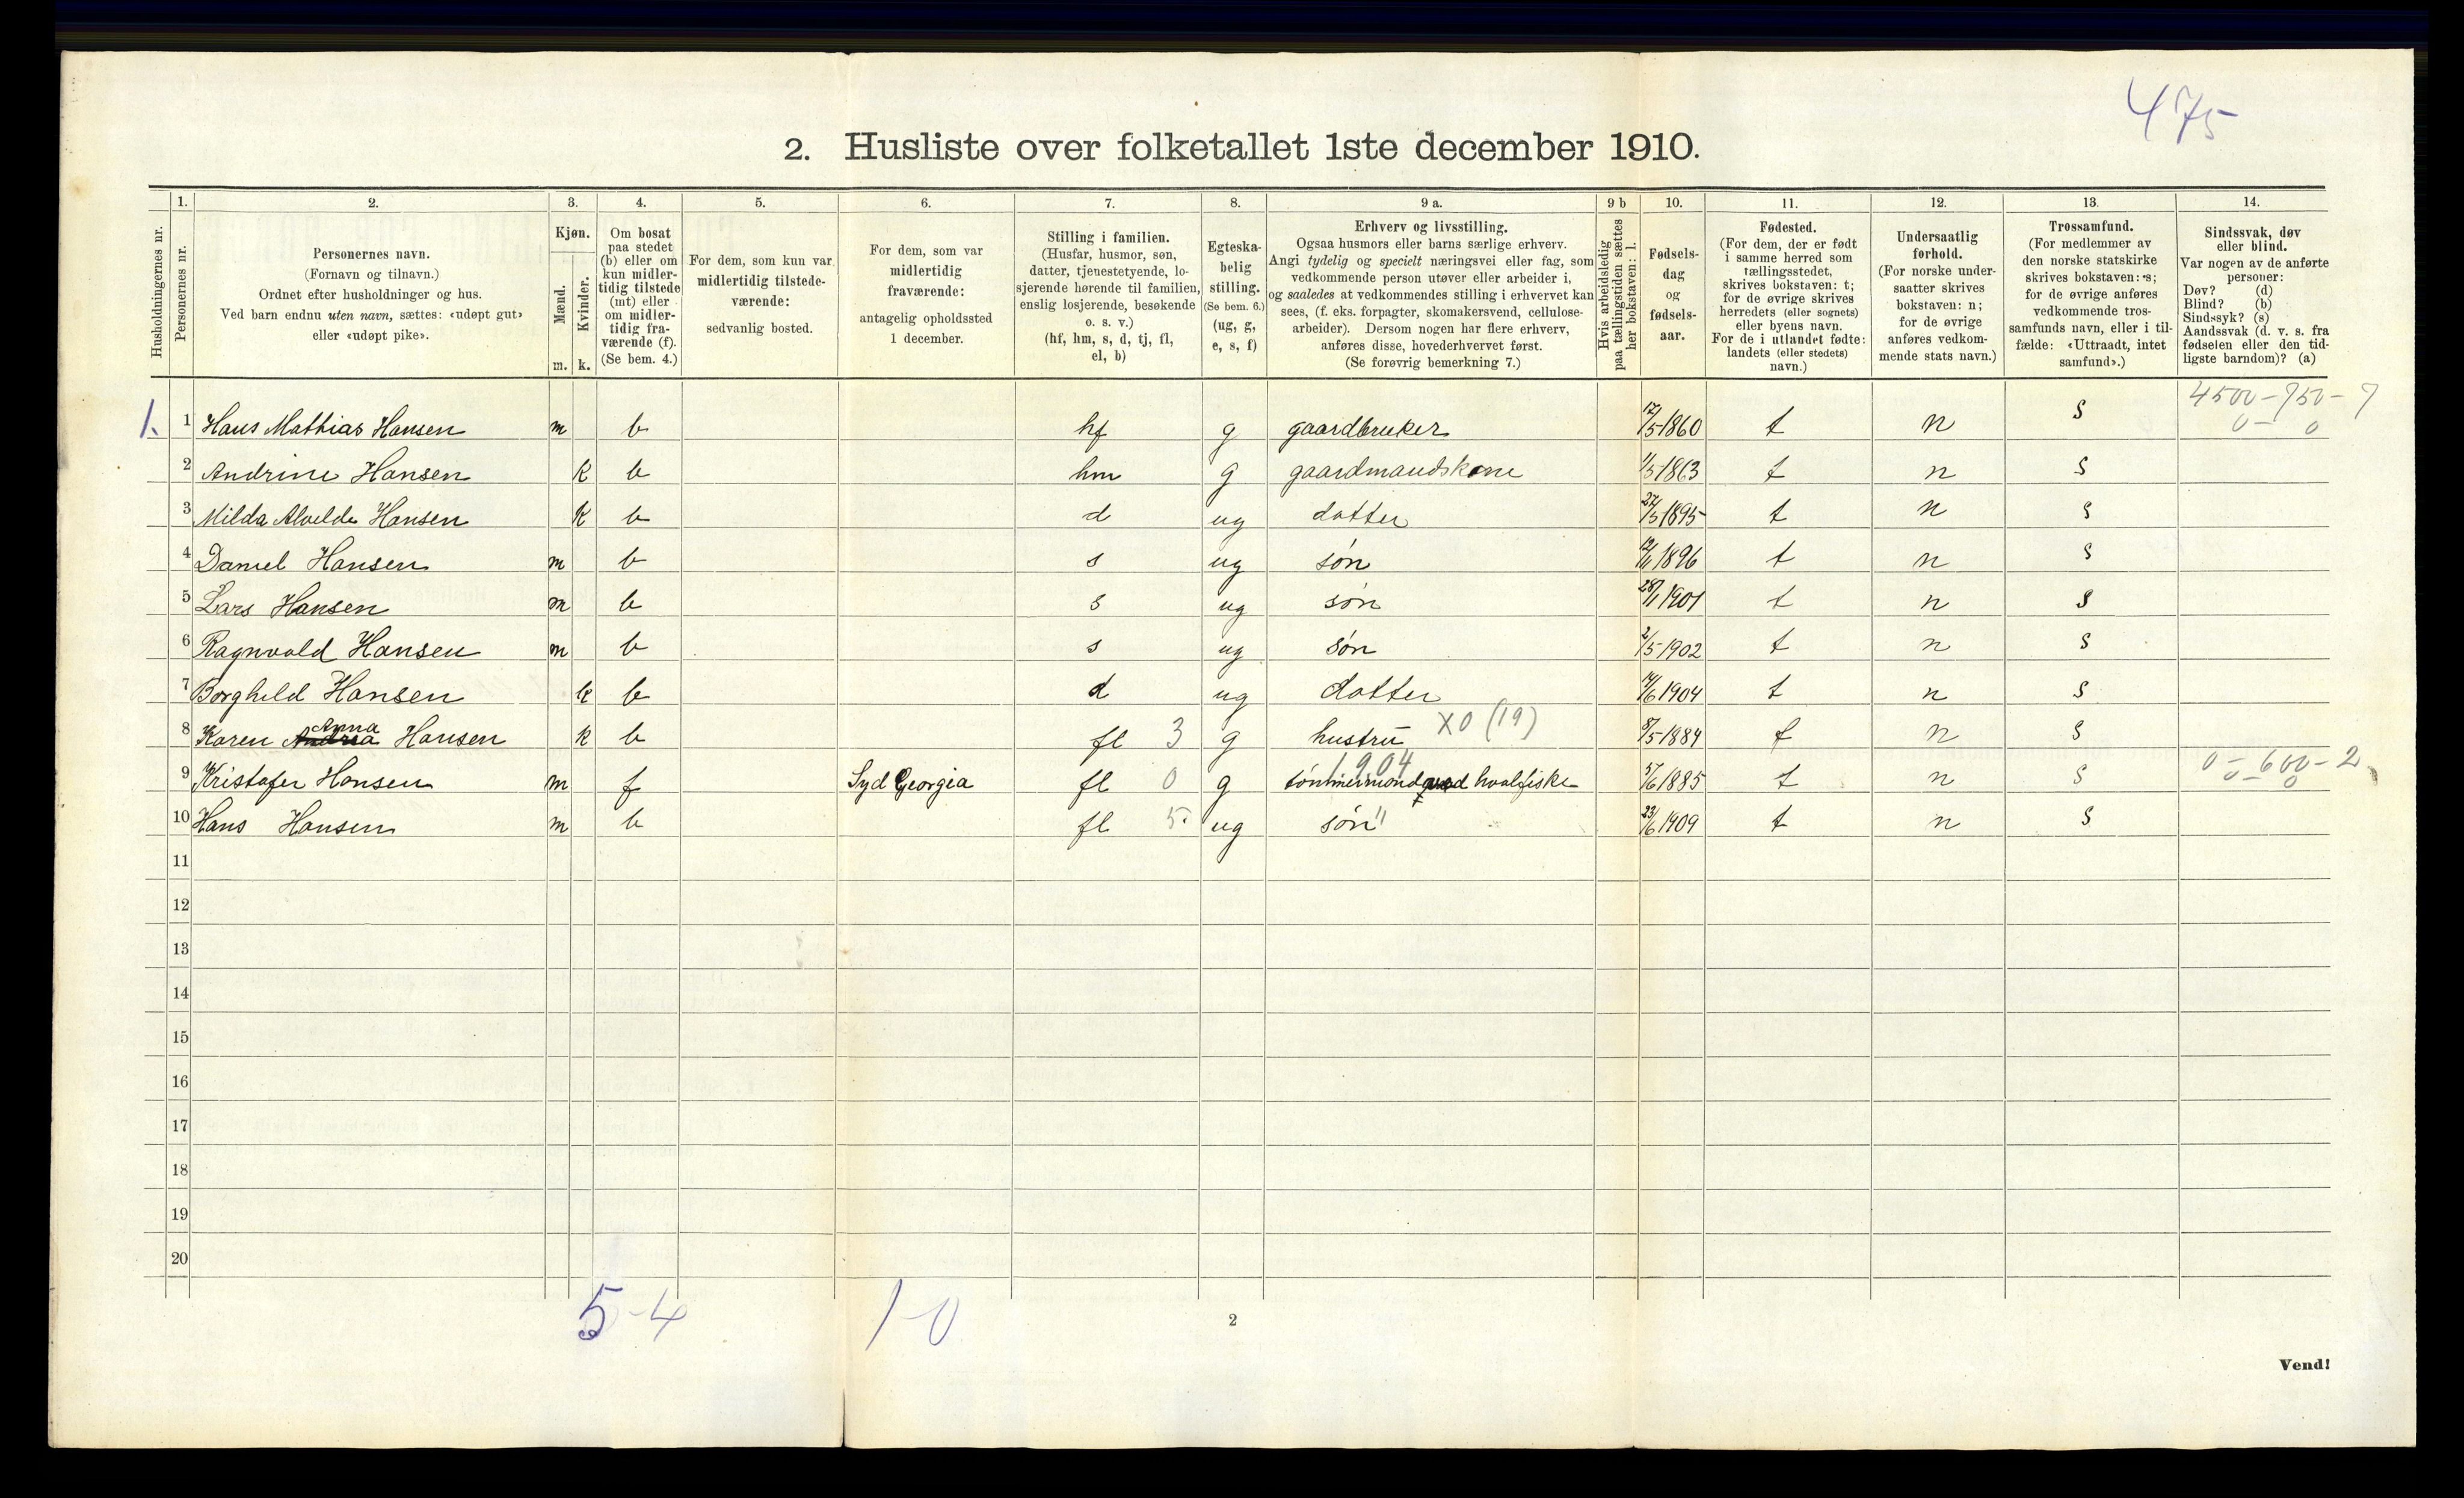 475
2. Husliste over folketallet 1ste december 1910.
Husholdningernes nr.
1.
Personernes nr.
2.
Personernes navn.
(Fornavn og tilnavn.)
Ordnet efter husholdninger og hus.
Ved barn endnu uten navn, sættes: «udøpt gut»
eller «udøpt pike».
3.
Kjøn.
Mænd.
Kvinder.
m. k.
4.
Om bosat
paa stedet
(b) eller om
kun midler-
tidig tilstede
(mt) eller
om midler-
tidig fra-
værende (f).
(Se bem. 4.)
5.
For dem, som kun var
midlertidig tilstede-
værende:
sedvanlig bosted.
6.
For dem, som var
midlertidig
fraværende:
antagelig opholdssted
1 december.
7.
Stilling i familien.
(Husfar, husmor, søn,
datter, tjenestetyende, lo-
sjerende hørende til familien,
enslig losjerende, besøkende
o. s. v.)
(hf, hm, s, d, tj, fl,
el, b)
8.
Egteska-
belig
stilling.
(Se bem. 6.)
(ug, g,
e, s, f)
9 a.
Erhverv og livsstilling.
Ogsaa husmors eller barns særlige erhverv.
Angi tydelig og specielt næringsvei eller fag, som
vedkommende person utøver eller arbeider i,
og saaledes at vedkommendes stilling i erhvervet kan
sees, (f. eks. forpagter, skomakersvend, cellulose-
arbeider). Dersom nogen har flere erhverv,
anføres disse, hovederhvervet først.
(Se forøvrig bemerkning 7.)
9 b
Hvis arbeidsledig
paa tællingstiden sættes
her bokstaven: l.
10.
Fødsels-
dag
og
fødsels-
aar.
11.
Fødested.
(For dem, der er født
i samme herred som
tællingsstedet,
skrives bokstaven: t;
for de øvrige skrives
herredets (eller sognets)
eller byens navn.
For de i utlandet fødte:
landets (eller stedets)
navn.)
12.
Undersaatlig
forhold.
(For norske under-
saatter skrives
bokstaven: n;
for de øvrige
anføres vedkom-
mende stats navn.)
13.
Trossamfund.
(For medlemmer av
den norske statskirke
skrives bokstaven: s;
for de øvrige anføres
vedkommende tros-
samfunds navn, eller i til-
fælde: «Uttraadt, intet
samfund».)
14.
Sindssvak, døv
eller blind.
Var nogen av de anførte
personer:
Døv? (d)
Blind? (b)
Sindssyk? (s)
Aandssvak (d. v. s. fra
fødselen eller den tid-
ligste barndom)? (a)
4500-750-7
1. 1 Hans Mathias Hansen m b hf g gaardbruker 17/5 1860 t n s 0- 0
2 Andrine Hansen k b hm g gaardmandskone 1/5 1863 t n s
3 Milda Alvilde Hansen k b d ug datter 27/5 1895 t n s
4 Daniel Hansen m b s ug søn 12/11 1896 t n s
5 Lars Hansen m b s ug søn 28/1 1901 t n s
6 Ragnvald Hansen m b s ug søn 2/5 1902 t n s
7 Borghild Hansen k b d ug datter 14/6 1904 t n s
Anna
8 Karen Andrea Hansen k b fl 3 g hustru X0 (19) 8/5 1884 t n s
1904
9 Kristofer Hansen m f Syd Georgia fl 0 g tømmermand ved hvalfiske 5/6 1885 t n s 0-600-2
0
10 Hans Hansen m b fl 5. ug søn " 23/6 1909 t n s
11
12
13
14
15
16
17
18
19
20
5-4 1-0
2
Vend!